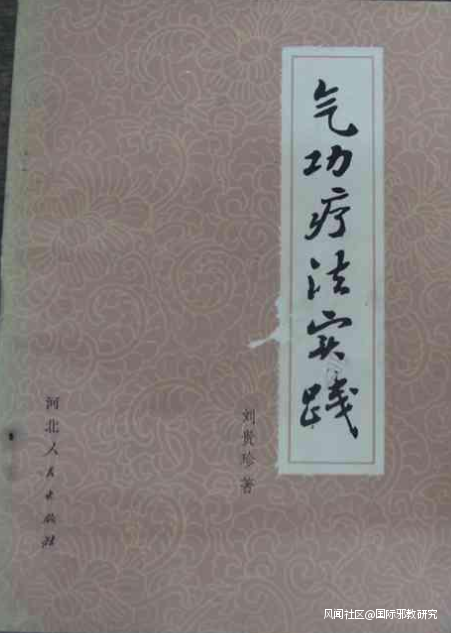 气功疗法实践
刘贵珍著
河北人民出版社
风闻社区@国际邪教研究